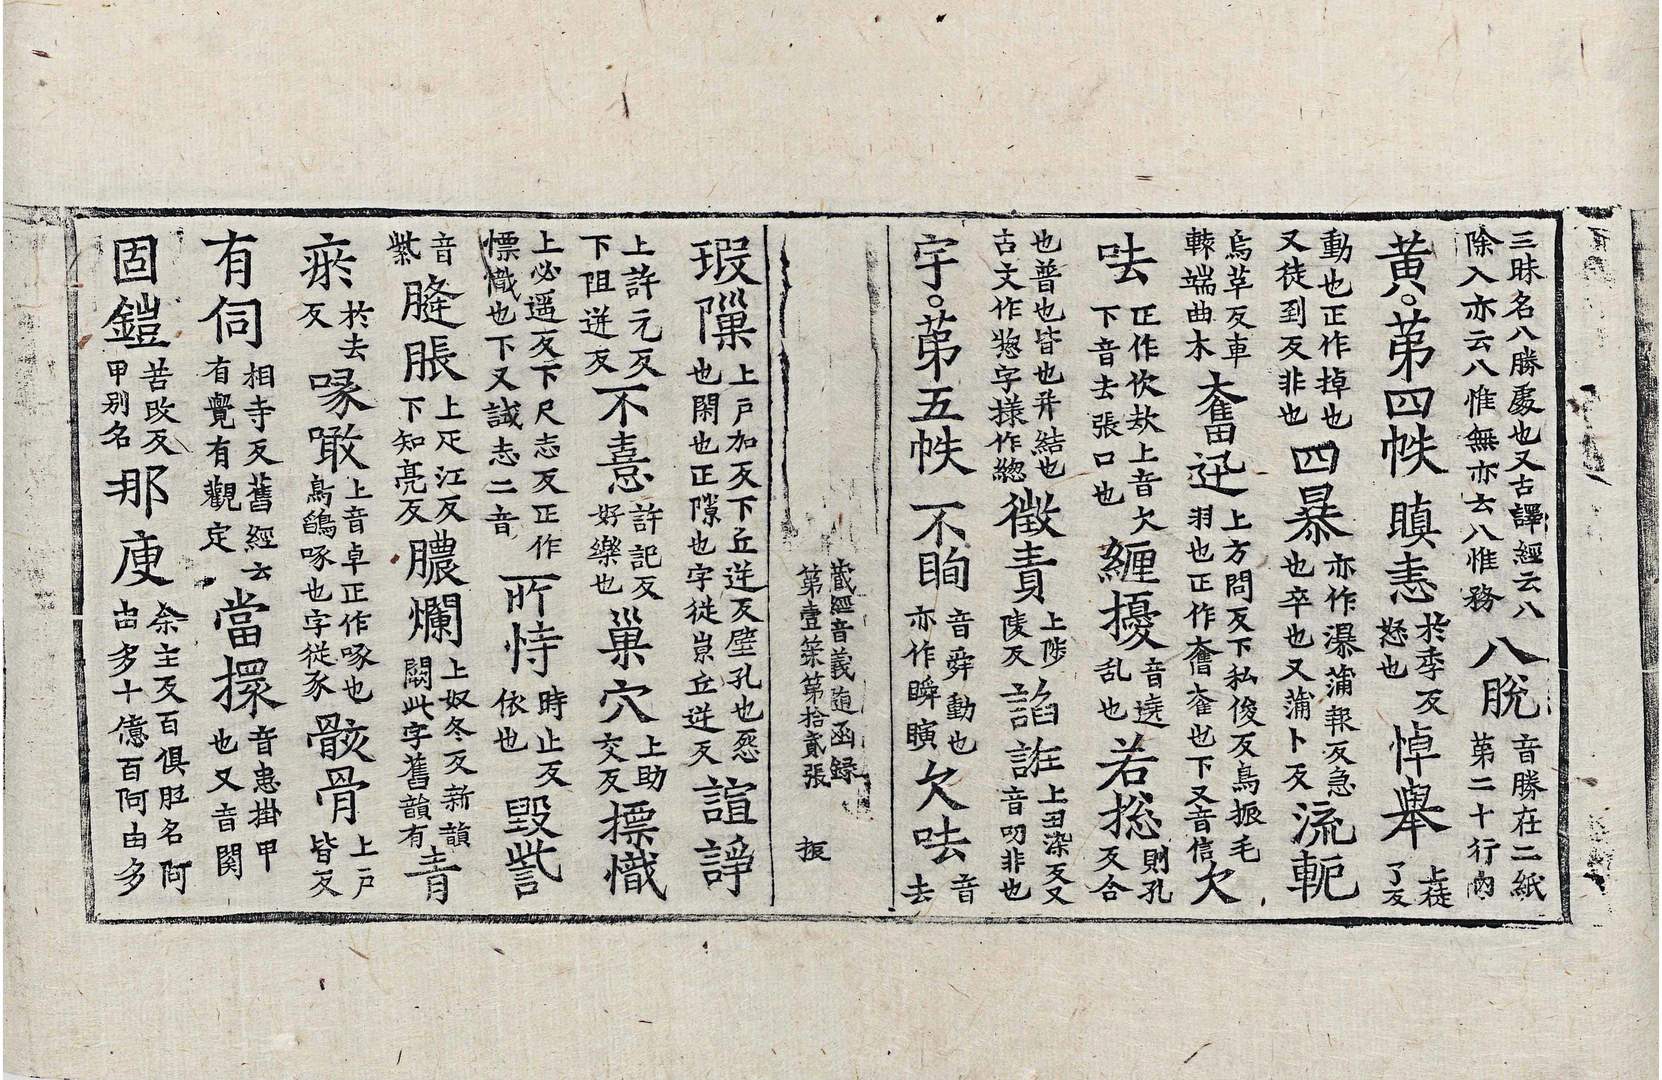 三昧名八勝處也又古譯經云八
除入亦云八惟無亦云八惟務八脫音勝在二紙
第二十行內
黃。苐四帙瞋恚於季反
怒也悼舉上徒
了反
動也正作掉也
又徒到反非也四暴亦作瀑蒲報反急
也卒也又蒲卜反流軛
烏草反車
轅端曲木奮迅上方問反下私俊反鳥振毛
羽也正作奮奞也下又音信欠
呿正作㰦欬上音欠
下音去張口也纏擾音遶
乱也若揔則孔
反合
也普也皆也并結也
古文作揔字樣作緫徵責上陟
陵反諂誑上丑染反又
音叨非也
字。苐五帙不眴音舜動也
亦作瞬瞚欠呿音
去
藏經音義隨函録
第壹第拾貳張 振
瑕隟上戶加反下丘逆反壁孔也怨
也閑也正隙也字從㡭丘逆反諠諍
上許元反
下阻迸反不憙許記反
好樂也巢穴上助
交反摽幟
上必遥反下尺志反正作
幖幟也下又誠志二音所恃時止反
依也毀訾
音
紫胮脹上疋江反
下知亮反膿爛上奴冬反新韻
闕此字舊韻有青
瘀於去
反啄噉上音卓正作啄也
鳥鵮啄也字從豕骸骨上戶
皆反
有伺相寺反舊經云
有覺有觀定當擐音患掛甲
也又音関
固鎧苦改反
甲别名那庾余主反百俱胝名阿
由多十億百阿由多